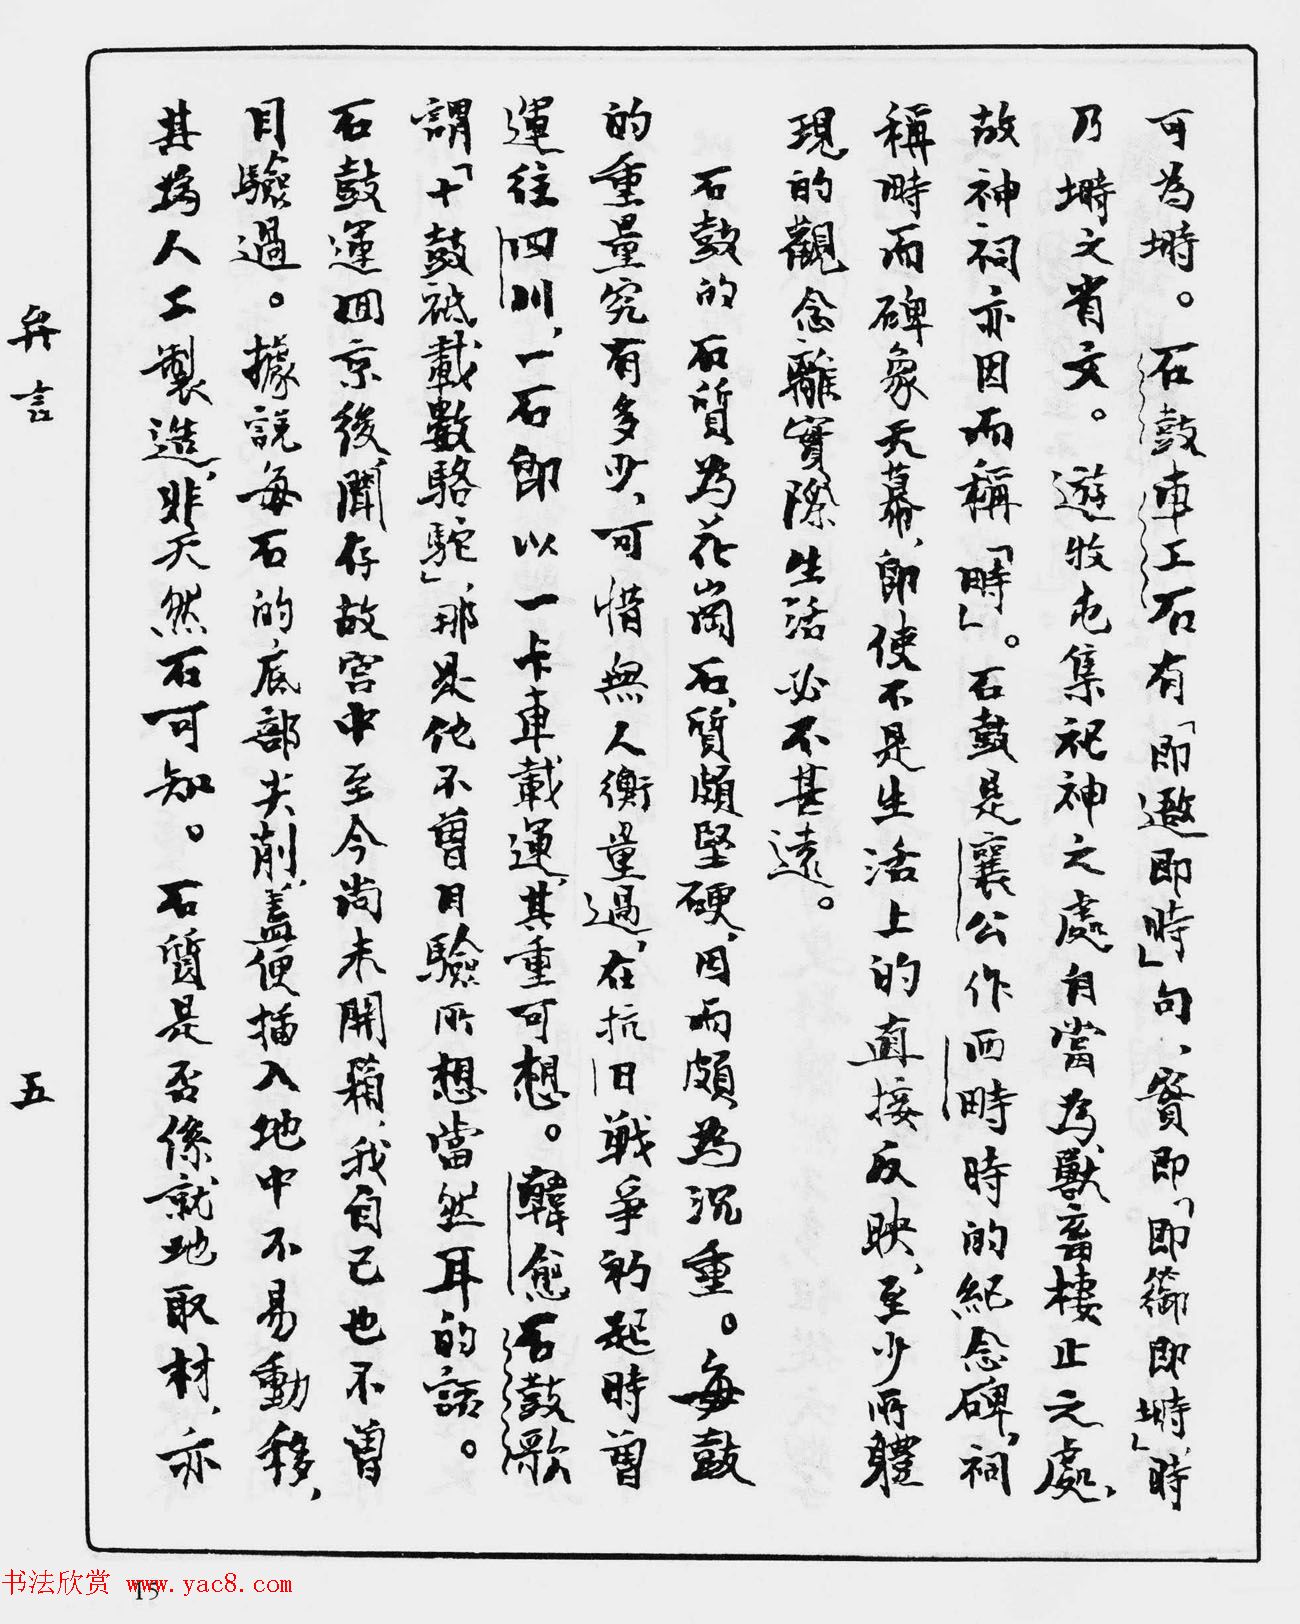 可為塒。石鼓車工石有「即邀即時」句、實即「即禦即塒」、時
乃塒之省文。遊牧屯集祀神之處自當為獸畜棲止之處，
故神祠亦因而稱「畤」。石鼓是襄公作西畤時的紀念碑，祠
稱畤而碑象天幕，即使不是生活上的直接反映，至少所體
現的觀念離實際生活必不甚遠。
石鼓的石質為花崗石，質頗堅硬，因而頗為沉重。每鼓
的重量究有多少，可惜無人衡量過，在抗日戰爭初起時曾
運往四川，一石即以一卡車載運，其重可想。韓愈石鼓歌
謂「十鼓祗載數駱駝」，那是他不曾目驗所想當然耳的話。
石鼓運回京後，聞存故宮中至今尚未開箱，我自己也不曾
目驗過。據說每石的底部尖削，蓋便插入地中不易動移，
其為人工製造，非天然石可知。石質是否係就地取材，亦
弁言
五
15
书法欣赏 www.yac8.com